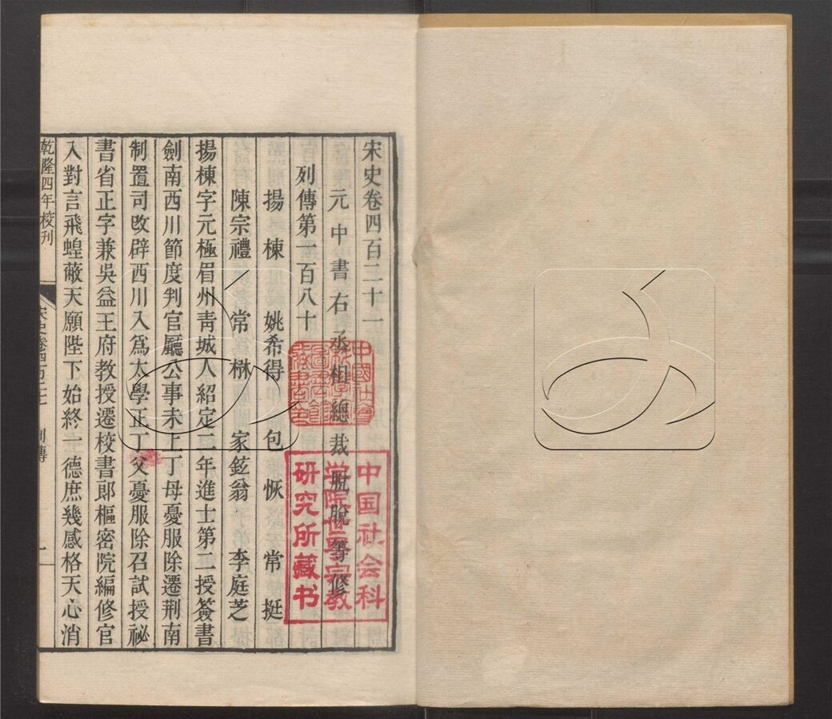 宋史卷四百二十一
元中書右丞相總裁脫脫等修
列傳第一百八十
楊棟 姚希得 包恢 常挺
陳宗禮 常楙 家鉉翁 李庭芝
楊棟字元極眉州靑城人紹定二年進士第二授簽書
劍南西川節度判官廳公事未上丁母憂服除遷荆南
制置司改辟西川入爲太學正丁父憂服除召試授祕
書省正字兼吳益王府教授遷校書郎樞密院編修官
入對言飛蝗蔽天願陛下始終一德庶幾感格天心消
乾隆四年校刊
宋史卷四百二十一 列傳
一
中国社会科
学院世界宗教
研究所藏书